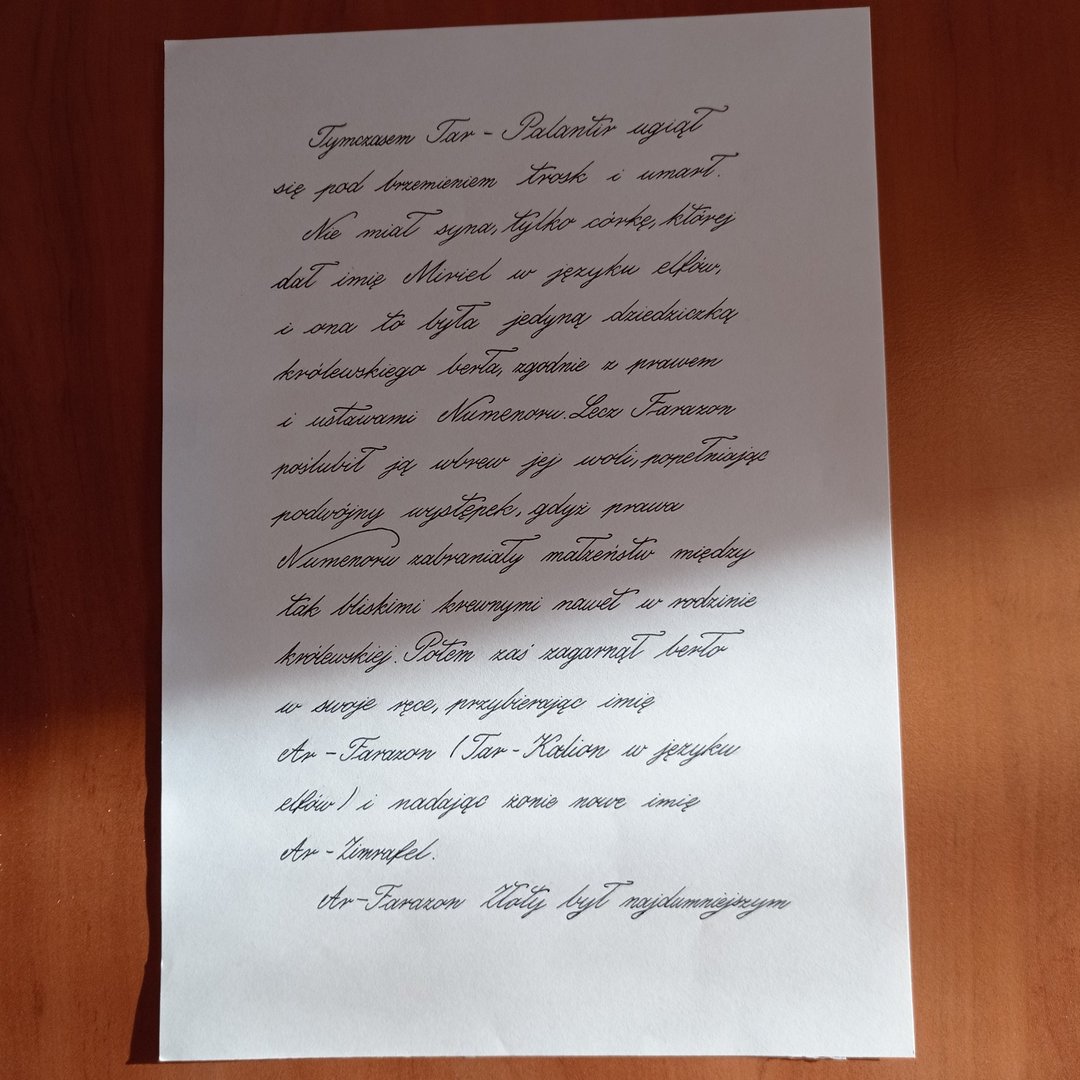 Tymczasem Tar - Palantir ugiął
się pod brzemieniem trosk i umarł.
Nie miał syna, tylko córkę, której
dał imię Miriel w języku elfów,
i ona to była jedyną dziedziczką
królewskiego berła, zgodnie z prawem
i ustawami Numenoru. Lecz Farazon
poślubił ją wbrew jej woli, popełniając
podwójny występek, gdyż prawa
Numenoru zabraniały małżeństw między
tak bliskimi krewnymi nawet w rodzinie
królewskiej. Potem zaś zagarnął berło
w swoje ręce, przybierając imię
Ar - Farazon (Tar - Kalion w języku
elfów) i nadając żonie nowe imię
Ar - Zimrafel.
Ar - Farazon Złoty był najdumniejszym